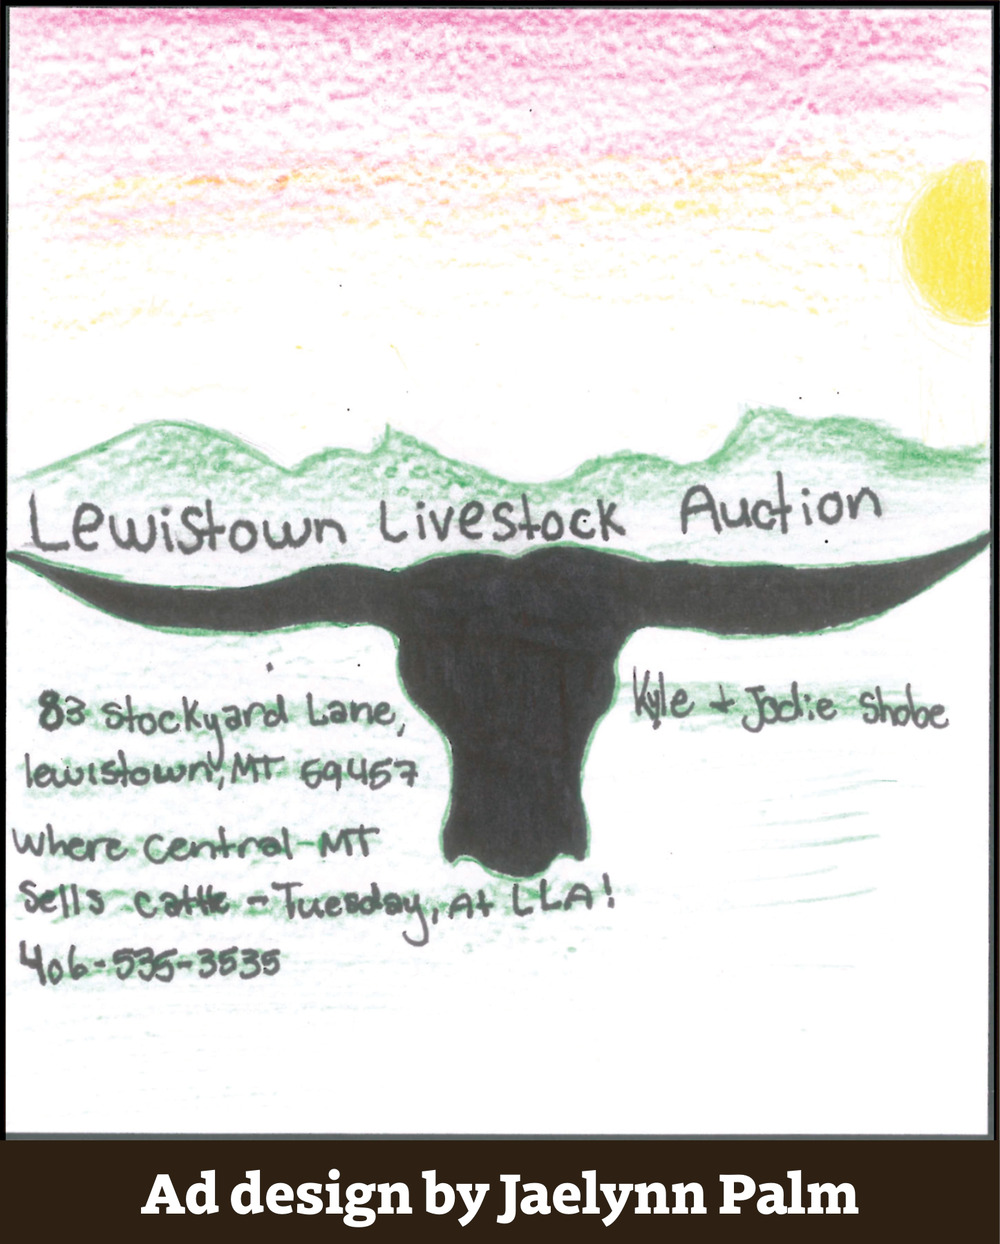 Lewistown Livestock Auction
83 Stockyard Lane,
lewistown, MT 59457
Kyle + Jodie Shobe
Where Central-MT
Sells cattle - Tuesday, At LLA!
406-535-3535
Ad design by Jaelynn Palm